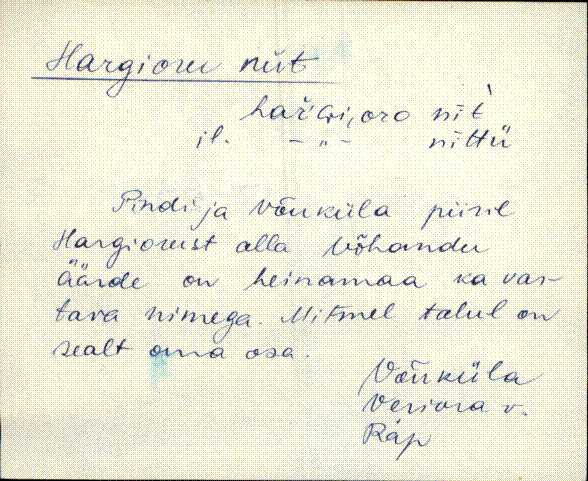 Hargioru niit
nit̀
il. – " – nittü
Pindi ja Võuküla piiril
Hargiorust alla Võhandu
äärde on heinamaa ka vas-
tava nimega. Mitmel talul on
sealt oma osa.
Võuküla
Veriora v.
Räp